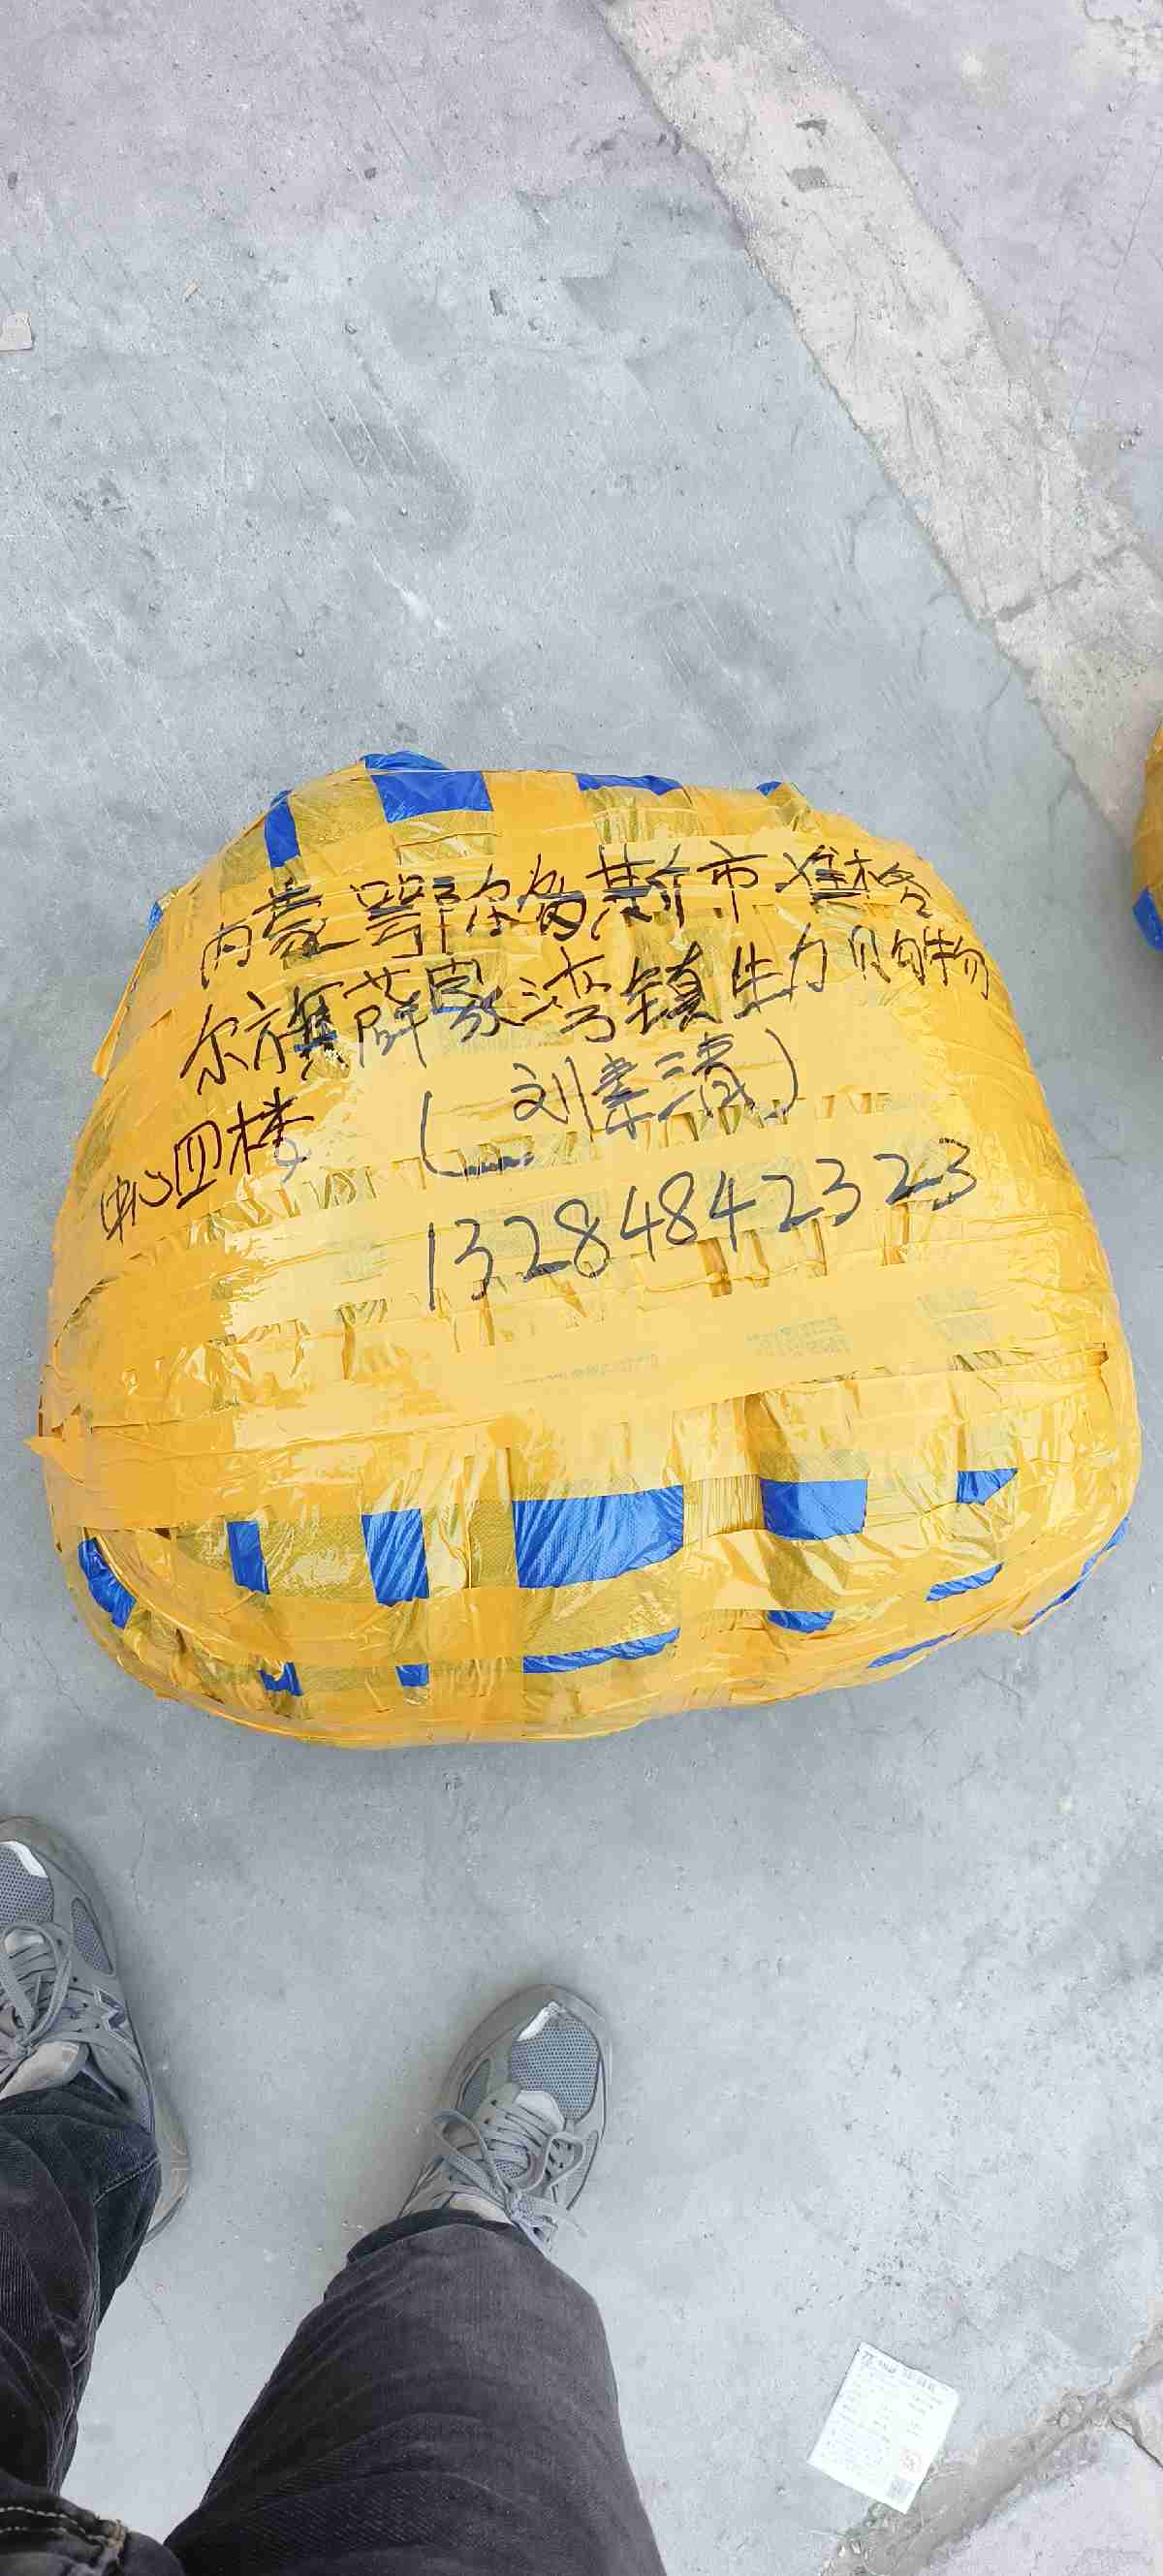 内蒙鄂尔多斯市准格
尔旗薛家湾镇生力购物
中心四楼 (刘素清)
13284842323